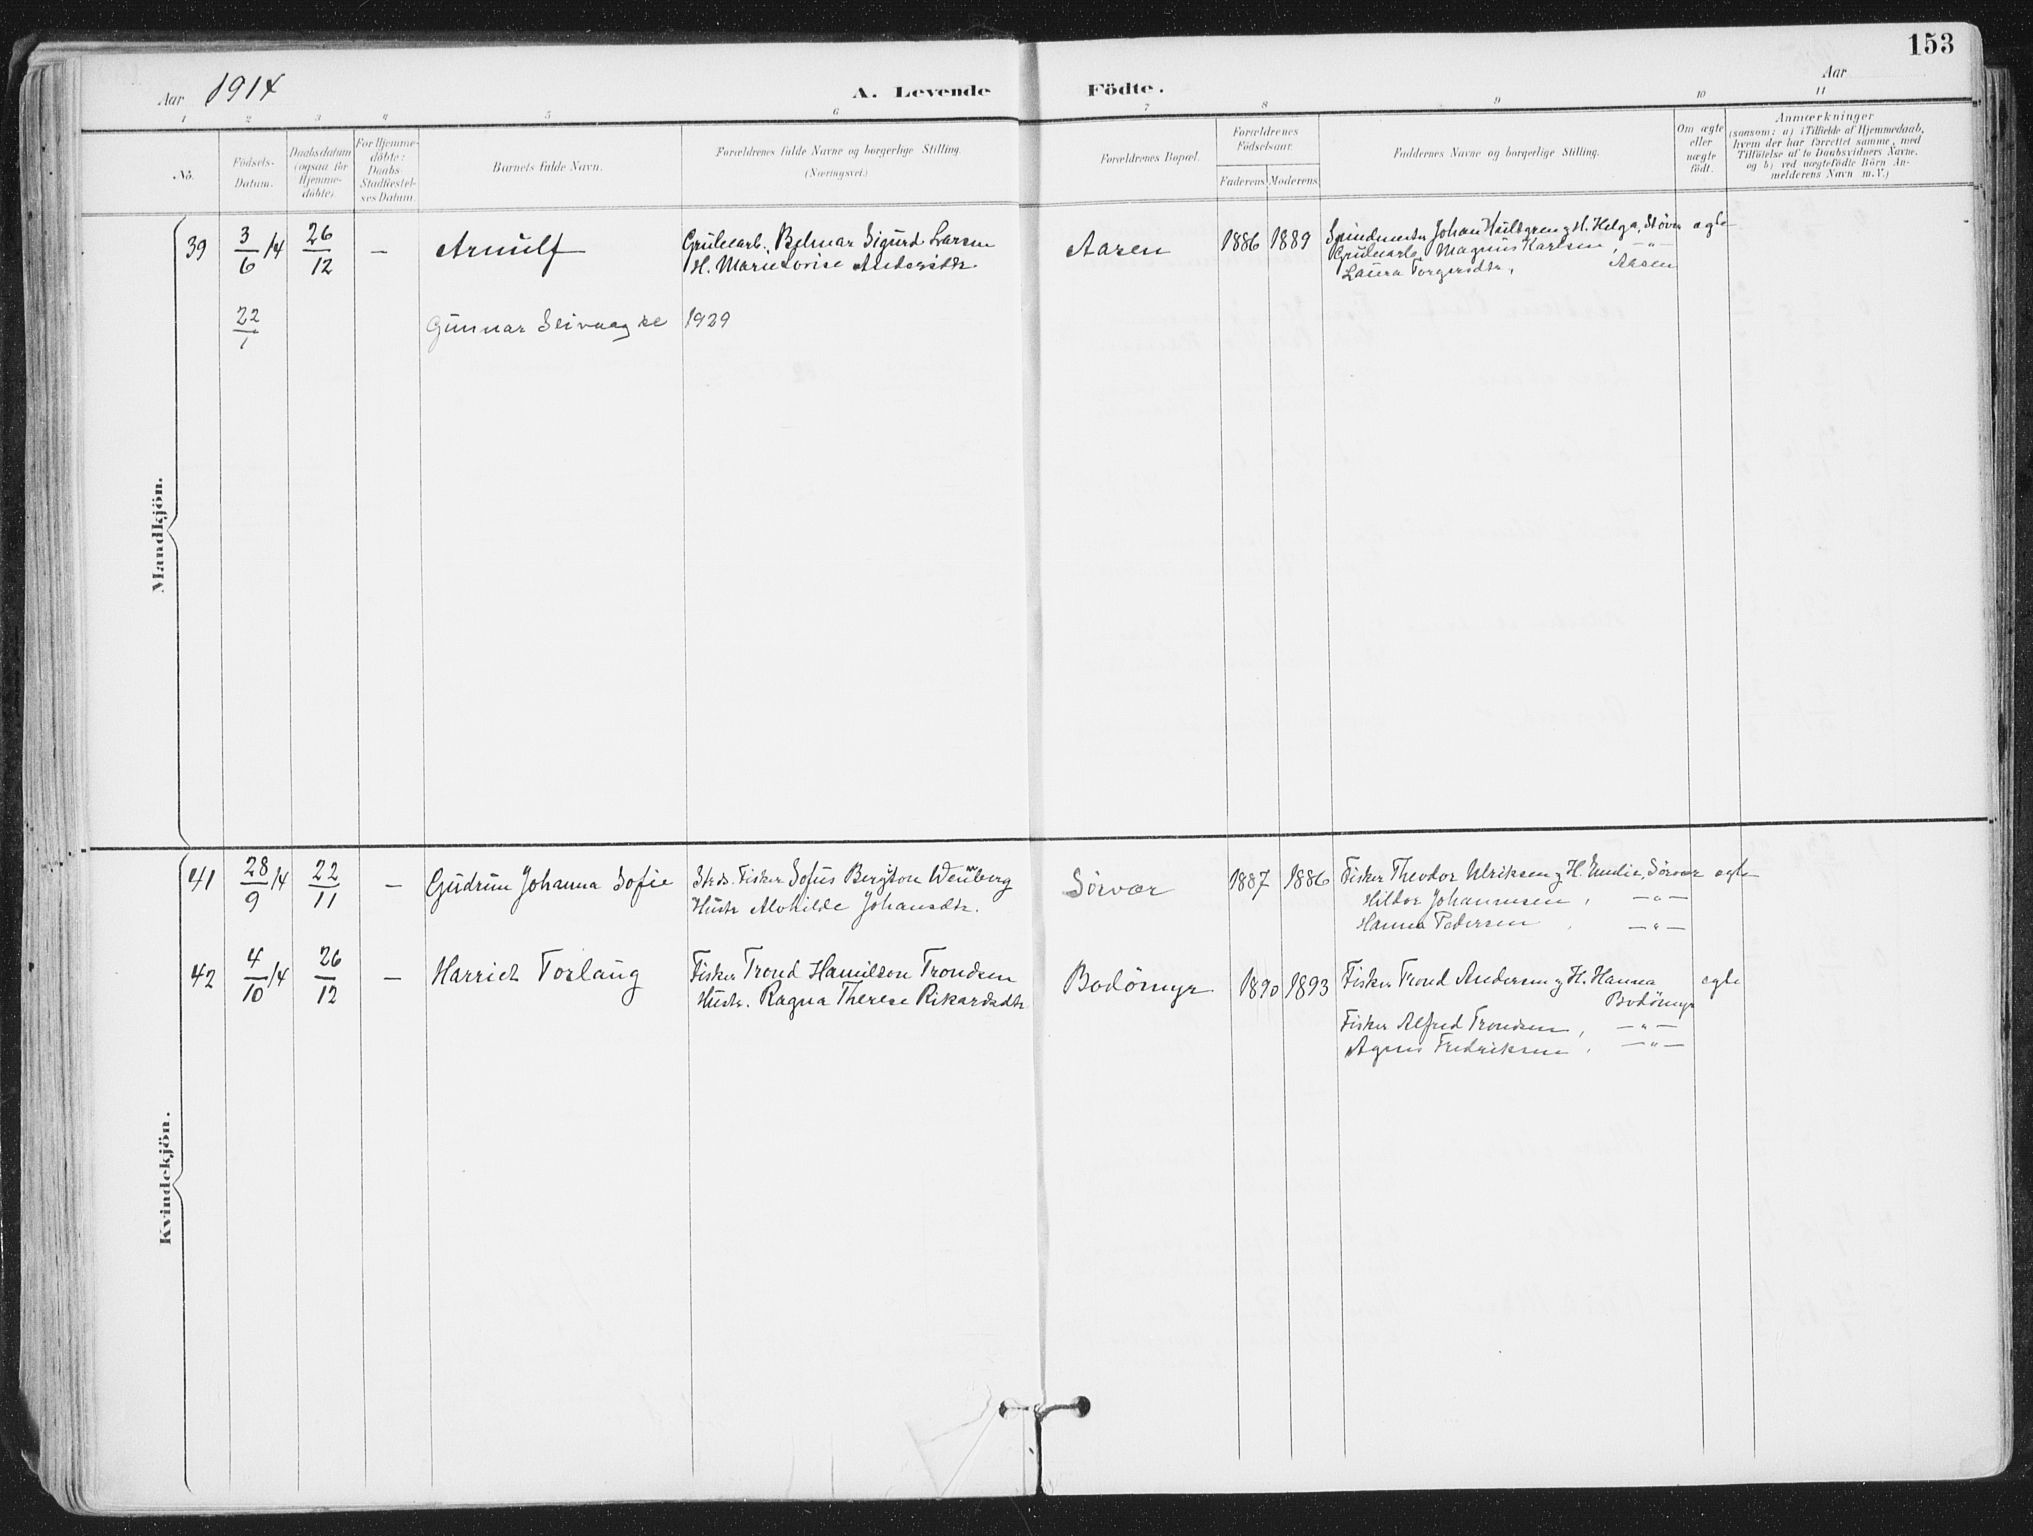 153
Aar 1914
A. Levende Födte.
Aar
1 2 3 4 5 6 7 8 9 10 11
No.
Födsels-Datum.
Daabsdatum (ogsaa for Hjemmedöbte).
For Hjemmedöbte: Daabs-Stadfæstelses Datum.
Barnets fulde Navn.
Forældrenes fulde Navne og borgerlige Stilling. (Næringsvei.)
Forældrenes Bopæl.
Forældrenes Födselsaar.
Faderens. Moderens.
Faddernes Navne og borgerlige Stilling.
Om ægte eller uægte födt.
Anmærkninger
(saasom: a) i Tilfælde af Hjemmedaab, hvem der har forrettet samme, med Tilföielse af to Daabsvidners Navne. og b) ved uægtefödte Börn Anmelderens Navn m.V.)
Mandkjön.
39 3/6 14 26/12 — Arnulf Grubearb. Sigurd Larsen Aasen 1886 1889 Johan Hultgren og H. Helga, Støver egte
H. Marie Lovise Andersdtr. Grubearb. Magnus Karlsen, —"—
Laura Torgersdtr, Aasen
22/1 Gunnar 1929
Kvindekjön.
41 28/9 14 22/11 — Gudrun Johanna Sofie Fisker Sofus Wennberg Sörvær 1887 1886 Fisker Theodor Ulriksen og H. Emilie, Sörvær egte
Hustr Alvhilde Johansdtr. Hildor Johannesen, —"—
Hanna Pedersen, —"—
42 4/10 14 26/12 — Harriet Torlaug Fisker Trond Hamilton Trondsen Bodömyr 1890 1893 Fisker Trond Andersen og H. Hanna egte
Hustr. Ragna Therese Rikardsdtr. Bodömyr
Fisker Alfred Trondsen, —"—
Agnes Fredriksen, —"—